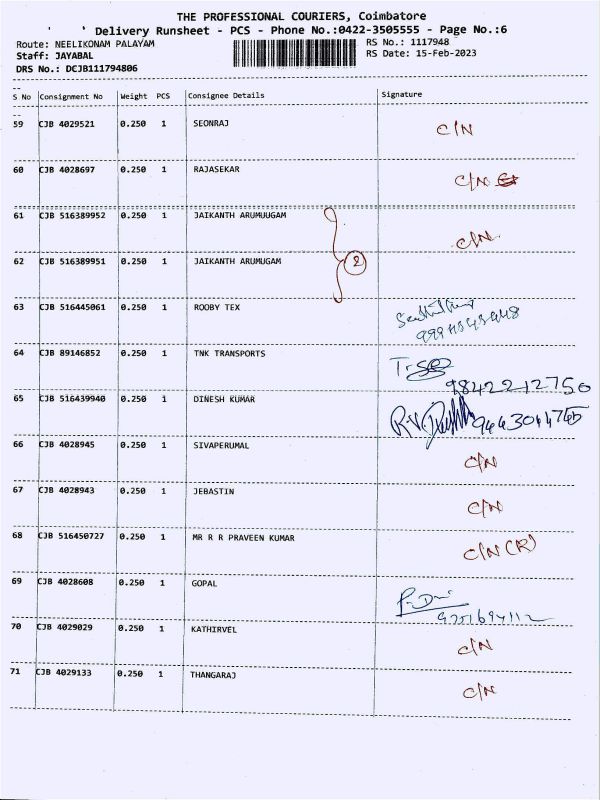 THE PROFESSIONAL COURIERS, Coimbatore
' ' Delivery Runsheet - PCS - Phone No.:0422-3505555 - Page No.:6
Route: NEELIKONAM PALAYAM RS No.: 1117948
Staff: JAYABAL RS Date: 15-Feb-2023
DRS No.: DCJB111794806
S No Consignment No Weight PCS Consignee Details Signature
59 CJB 4029521 0.250 1 SEONRAJ C/N
60 CJB 4028697 0.250 1 RAJASEKAR C/N
61 CJB 516389952 0.250 1 JAIKANTH ARUMUUGAM C/N
62 CJB 516389951 0.250 1 JAIKANTH ARUMUGAM 2
63 CJB 516445061 0.250 1 ROOBY TEX
64 CJB 89146852 0.250 1 TNK TRANSPORTS
9842212750
65 CJB 516439940 0.250 1 DINESH KUMAR R.V.
66 CJB 4028945 0.250 1 SIVAPERUMAL C/N
67 CJB 4028943 0.250 1 JEBASTIN C/N
68 CJB 516450727 0.250 1 MR R R PRAVEEN KUMAR C/N (R)
69 CJB 4028608 0.250 1 GOPAL
70 CJB 4029029 0.250 1 KATHIRVEL C/N
71 CJB 4029133 0.250 1 THANGARAJ C/N